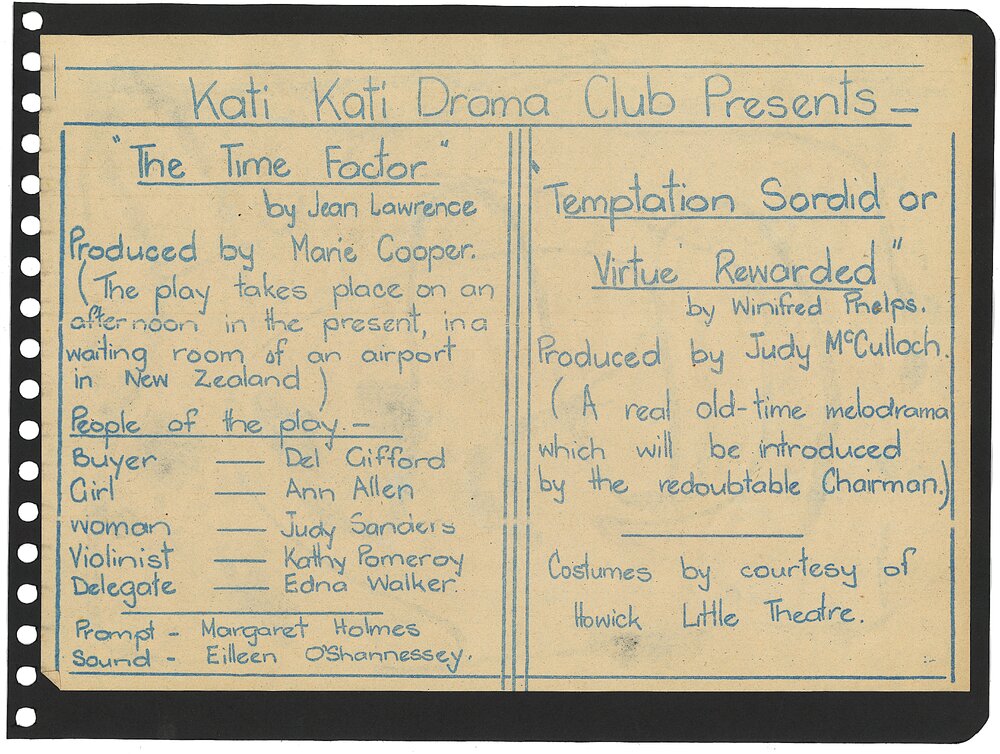 Kati Kati Drama Club Presents –
"The Time Factor"
by Jean Lawrence
Produced by Marie Cooper.
(The play takes place on an
afternoon in the present, in a
waiting room of an airport
in New Zealand)
People of the play. –
Buyer — Del Gifford
Girl — Ann Allen
Woman — Judy Sanders
Violinist — Kathy Pomeroy
Delegate — Edna Walker.
Prompt - Margaret Holmes
Sound - Eilleen O'Shannessey.
"Temptation Sordid or
Virtue Rewarded"
by Winifred Phelps.
Produced by Judy McCulloch.
(A real old-time melodrama
which will be introduced
by the redoubtable Chairman.)
Costumes by courtesy of
Howick Little Theatre.